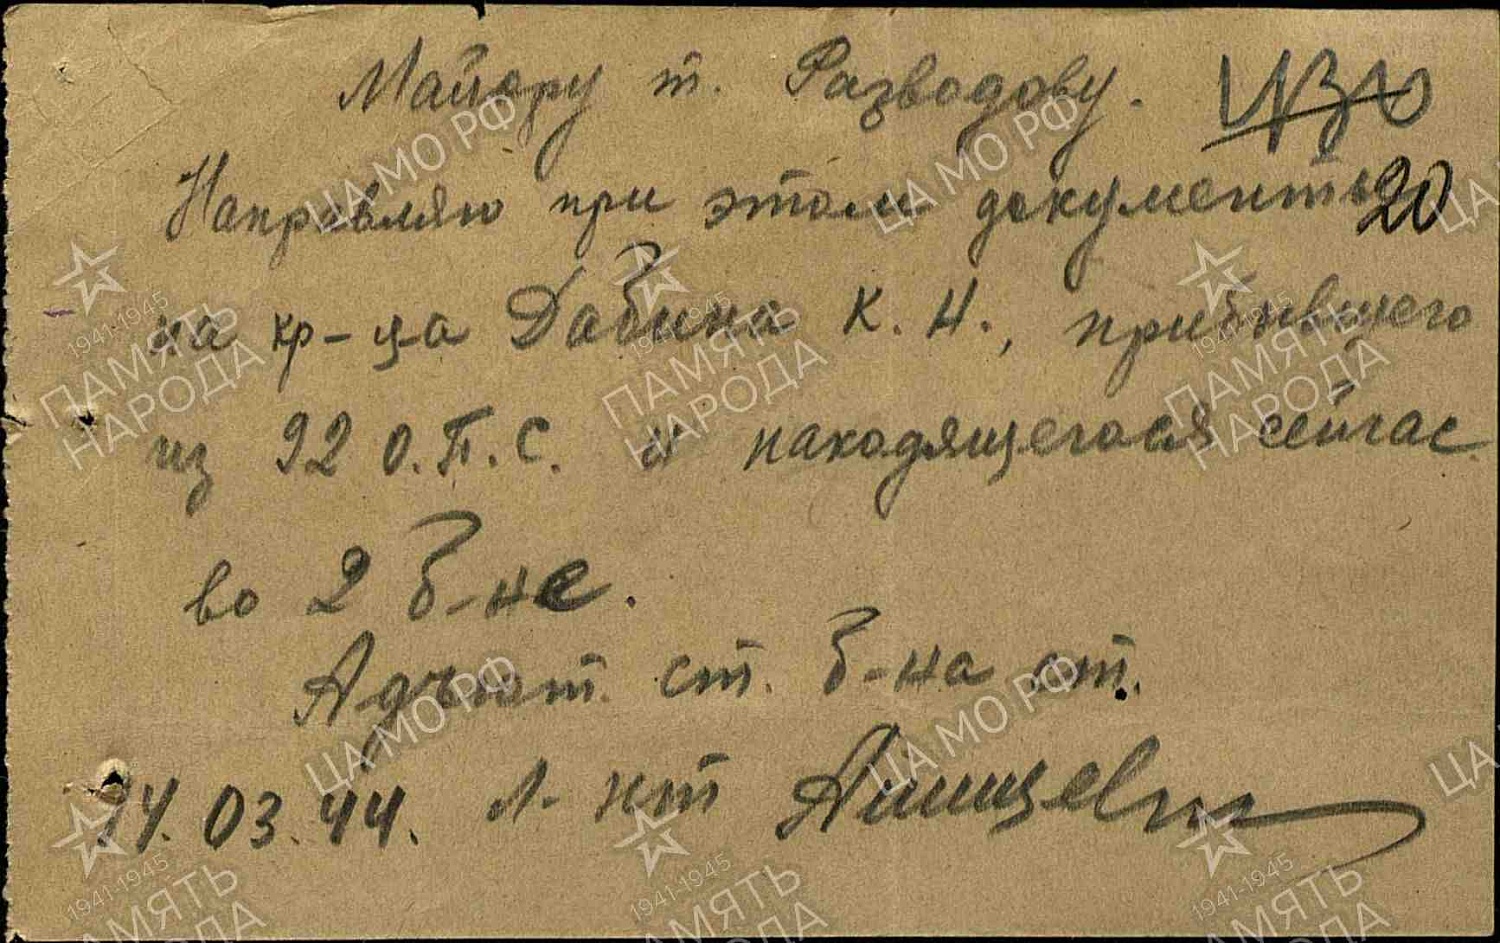 Майору т. Разводову.
20
Направляю при этом документы
на кр-ца Дабина К. Н., прибывшего
из 92 О.П.С. и находящегося сейчас
во 2 б-не.
Адъют. ст. б-на ст.
24.03.44. л-нт
ЦА МО РФ
1941-1945
ПАМЯТЬ
НАРОДА